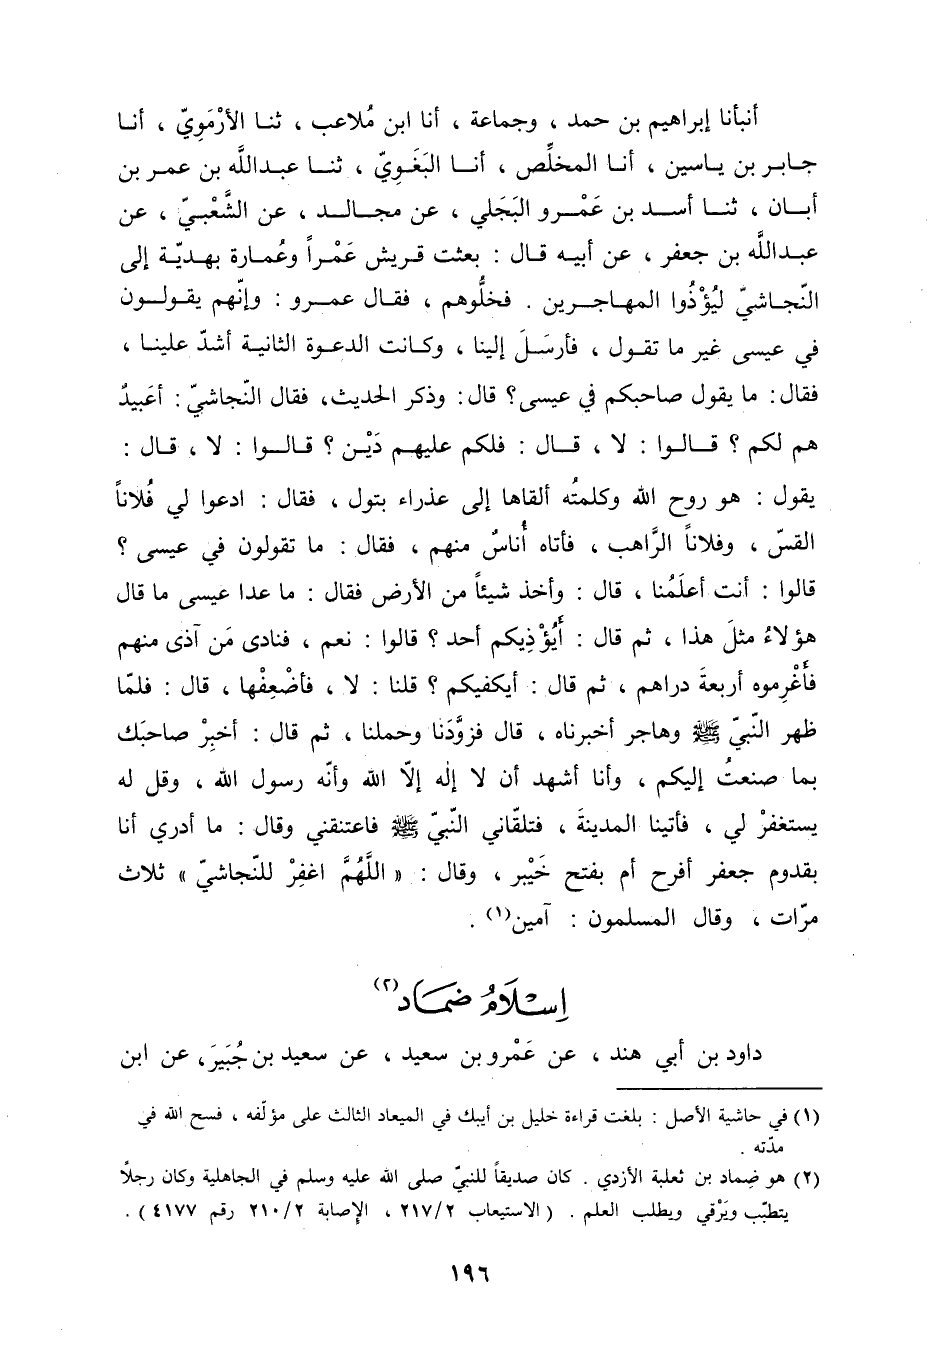 أنبأنا إبراهيم بن حمد ، وجماعة ، أنا ابن مُلاعب ، ثنا الأرْمَوِيّ ، أنا
جابر بن ياسين ، أنا المخلِّص ، أنا البَغَوِيّ ، ثنا عبدالله بن عمر بن
أبان ، ثنا أسد بن عَمْرو البَجَلي ، عن مجالد ، عن الشَّعْبيّ ، عن
عبدالله بن جعفر ، عن أبيه قال : بعثت قريش عَمْراً وعُمارة بهديّة إلى
النّجاشيّ ليُؤْذُوا المهاجرين . فخلُّوهم ، فقال عمرو : وإنّهم يقولون
في عيسى غير ما تقول ، فأرسَلَ إلينا ، وكانت الدعوة الثانية أشدّ علينا ،
فقال: ما يقول صاحبكم في عيسى؟ قال: وذكر الحديث، فقال النّجاشيّ: أعَبيدٌ
هم لكم ؟ قالوا : لا ، قال : فلكم عليهم دَيْن ؟ قالوا : لا ، قال :
يقول : هو روح الله وكلمتُه ألقاها إلى عذراء بتول ، فقال : ادعوا لي فُلاناً
القسّ ، وفلاناً الرَّاهب ، فأتاه أُناسٌ منهم ، فقال : ما تقولون في عيسى ؟
قالوا : أنت أعلَمُنا ، قال : وأخذ شيئاً من الأرض فقال : ما عدا عيسى ما قال
هؤلاءُ مثلَ هذا ، ثم قال : أَيُؤْذِيكم أحد ؟ قالوا : نعم ، فنادى مَن آذى منهم
فَأَغْرِموه أربعةَ دراهم ، ثم قال : أيكفيكم ؟ قلنا : لا ، فأضْعِفْها ، قال : فلمّا
ظهر النّبيّ ﷺ وهاجر أخبرناه ، قال فزوَّدَنا وحملنا ، ثم قال : أخبِرْ صاحبَك
بما صنعتُ إليكم ، وأنا أشهد أن لا إله إلّا الله وأنّه رسول الله ، وقل له
يستغفرْ لي ، فأتينا المدينةَ ، فتلقّاني النّبيّ ﷺ فاعتنقني وقال : ما أدري أنا
بقدوم جعفر أفرح أم بفتح خَيْبر ، وقال : « اللَّهُمَّ اغفِرْ للنّجاشيّ » ثلاث
مرّات ، وقال المسلمون : آمين(١) .
إسْلَامُ ضمَاد(٢)
داود بن أبي هند ، عن عَمْرو بن سعيد ، عن سعيد بن جُبَيرَ، عن ابن
(١) في حاشية الأصل : بلغت قراءة خليل بن أيبك في الميعاد الثالث على مؤلّفه ، فسح الله في
مدّته .
(٢) هو ضِماد بن ثعلبة الأزدي . كان صديقاً للنبيّ صلى الله عليه وسلم في الجاهلية وكان رجلاً
يتطبّب ويَرْقي ويطلب العلم . ( الاستيعاب ٢١٧/٢ ، الإصابة ٢١٠/٢ رقم ٤١٧٧ ) .
١٩٦